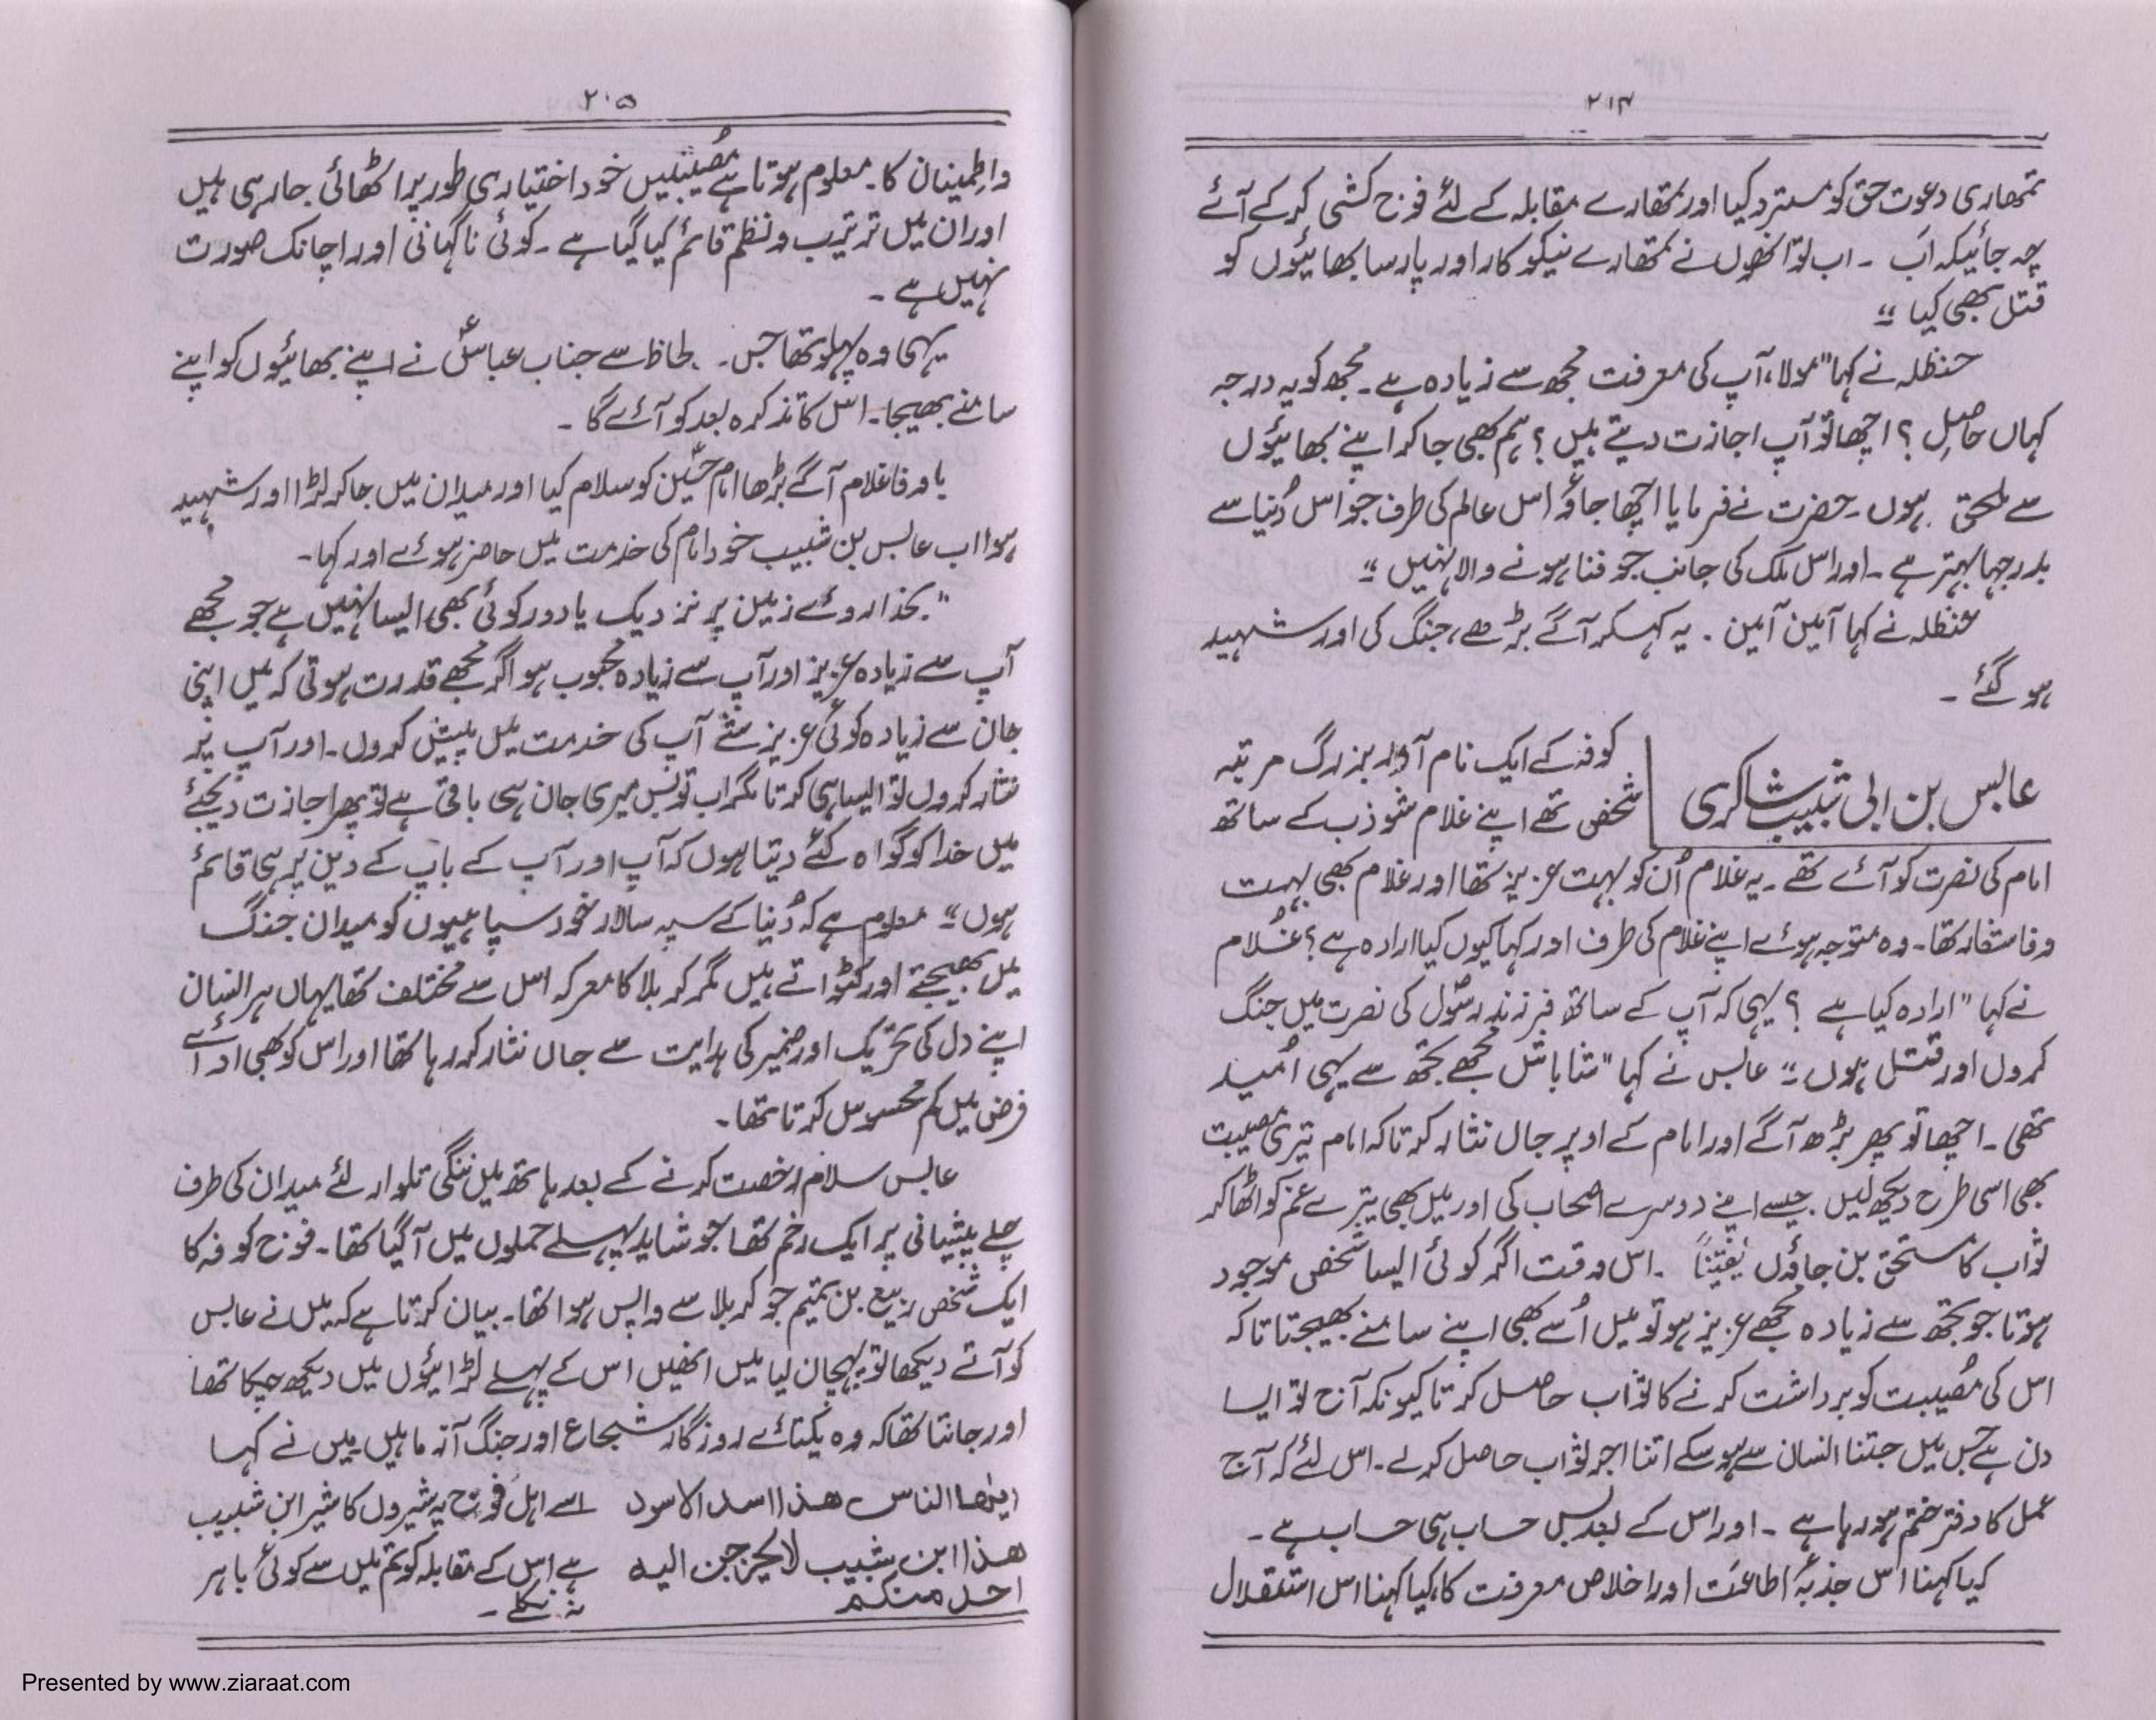 ۲۱۴
تمھاری دعوت حق کو مسترد کیا اور تمھارے مقابلہ کے لئے فوج کشی کر کے آئے
چہ جائیکہ اب ۔ اب تو انھوں نے تمھارے نیکو کار اور پارسا بھائیوں کو
قتل بھی کیا ۔"
حنظلہ نے کہا "مولا، آپ کی معرفت مجھ سے زیادہ ہے ۔ مجھ کو یہ درجہ
کہاں حاصل ؟ اچھا تو آپ اجازت دیتے ہیں ؟ ہم بھی جا کر اپنے بھائیوں
سے ملحق ہوں ۔ حضرت نے فرمایا اچھا جاؤ اس عالم کی طرف جو اس دُنیا سے
بدرجہا بہتر ہے ۔ اور اس ملک کی جانب جو فنا ہونے والا نہیں ۔"
حنظلہ نے کہا آمین آمین ۔ یہ کہکر آگے بڑھے، جنگ کی اور شہید
ہو گئے ۔
عابس بن ابی شبیب شاکری
کوفہ کے ایک نام آور بزرگ مرتبہ
شخص تھے اپنے غلام شوذب کے ساتھ
امام کی نصرت کو آئے تھے ۔ یہ غلام اُن کو بہت عزیز تھا اور غلام بھی بہت
وفا شعار تھا ۔ وہ متوجہ ہوئے اپنے غلام کی طرف اور کہا کیوں کیا ارادہ ہے ؟ غلام
نے کہا "ارادہ کیا ہے ؟ یہی کہ آپ کے ساتھ فرزند رسولؐ کی نصرت میں جنگ
کروں اور قتل ہوں ۔" عابس نے کہا "شاباش مجھے تجھ سے یہی اُمید
تھی ۔ اچھا تو پھر بڑھ آگے اور امام کے اوپر جاں نثار کر تاکہ امام تیری مصیبت
بھی اسی طرح دیکھ لیں جیسے اپنے دوسرے اصحاب کی اور میں بھی تیرے غم کو اٹھا کر
ثواب کا مستحق بن جاؤں یقیناً ۔ اس وقت اگر کوئی ایسا شخص موجود
ہوتا جو تجھ سے زیادہ مجھے عزیز ہو تو میں اُسے بھی اپنے سامنے بھیجتا تاکہ
اس کی مُصیبت کو برداشت کرنے کا ثواب حاصل کرتا کیونکہ آج تو ایسا
دن ہے جس میں جتنا انسان سے ہو سکے اتنا اجر ثواب حاصل کر لے ۔ اس لئے کہ آج
عمل کا دفتر ختم ہو رہا ہے ۔ اور اس کے بعد بس حساب ہی حساب ہے ۔
کیا کہنا اس جذبۂ اطاعت اور اخلاص معرفت کا، کیا کہنا اس استقلال
۲۰۵
واطمینان کا ۔ معلوم ہوتا ہے مُصیبتیں خود اختیاری طور پر اٹھائی جا رہی ہیں
اور ان میں ترتیب و نظم قائم کیا گیا ہے ۔ کوئی ناگہانی اور اچانک صورت
نہیں ہے ۔
یہی وہ پہلو تھا جس ۔ لحاظ سے جناب عباسؑ نے اپنے بھائیوں کو اپنے
سامنے بھیجا ۔ اس کا تذکرہ بعد کو آئے گا ۔
باوفا غلام آگے بڑھا امام حسینؑ کو سلام کیا اور میدان میں جا کر لڑا اور شہید
ہوا اب عابس بن شبیب خود امام کی خدمت میں حاضر ہوئے اور کہا ۔
"بخدا روئے زمین پر نزدیک یا دور کوئی بھی ایسا نہیں ہے جو مجھے
آپ سے زیادہ عزیز اور آپ سے زیادہ محبوب ہو اگر مجھے قدرت ہوتی کہ میں اپنی
جان سے زیادہ کوئی عزیز شے آپ کی خدمت میں پیش کروں ۔ اور آپ پر
نثار کروں تو ایسا ہی کرتا مگر اب تو بس میری جان ہی باقی ہے تو پھر اجازت دیجئے
میں خدا کو گواہ کئے دیتا ہوں کہ آپ اور آپ کے باپ کے دین پر ہی قائم
ہوں ۔" معلوم ہے کہ دُنیا کے سپہ سالار خود سپاہیوں کو میدان جنگ
میں بھیجتے اور کٹواتے ہیں مگر کربلا کا معرکہ اس سے مختلف تھا یہاں ہر انسان
اپنے دل کی تحریک اور ضمیر کی ہدایت سے جاں نثار کر رہا تھا اور اس کو بھی ادائے
فرض میں کم محسوس کرتا تھا ۔
عابس سلام رخصت کرنے کے بعد ہاتھ میں ننگی تلوار لئے میدان کی طرف
چلے پیشانی پر ایک زخم تھا جو شاید پہلے حملوں میں آ گیا تھا ۔ فوج کوفہ کا
ایک شخص ربیع بن تمیم جو کربلا سے واپس ہوا تھا ۔ بیان کرتا ہے کہ میں نے عابس
کو آتے دیکھا تو پہچان لیا میں انھیں اس کے پہلے لڑائیوں میں دیکھ چکا تھا
اور جانتا تھا کہ وہ یکتائے روزگار شجاع اور جنگ آزما ہیں میں نے کہا
ایھا الناس ھذا اسد الاسود
ھذا ابن شبیب لایخرجن الیہ
احد منکم
اے اہل فوج یہ شیروں کا شیر ابن شبیب
ہے اس کے مقابلہ کو تم میں سے کوئی باہر
نہ نکلے ۔
Presented by www.ziaraat.com